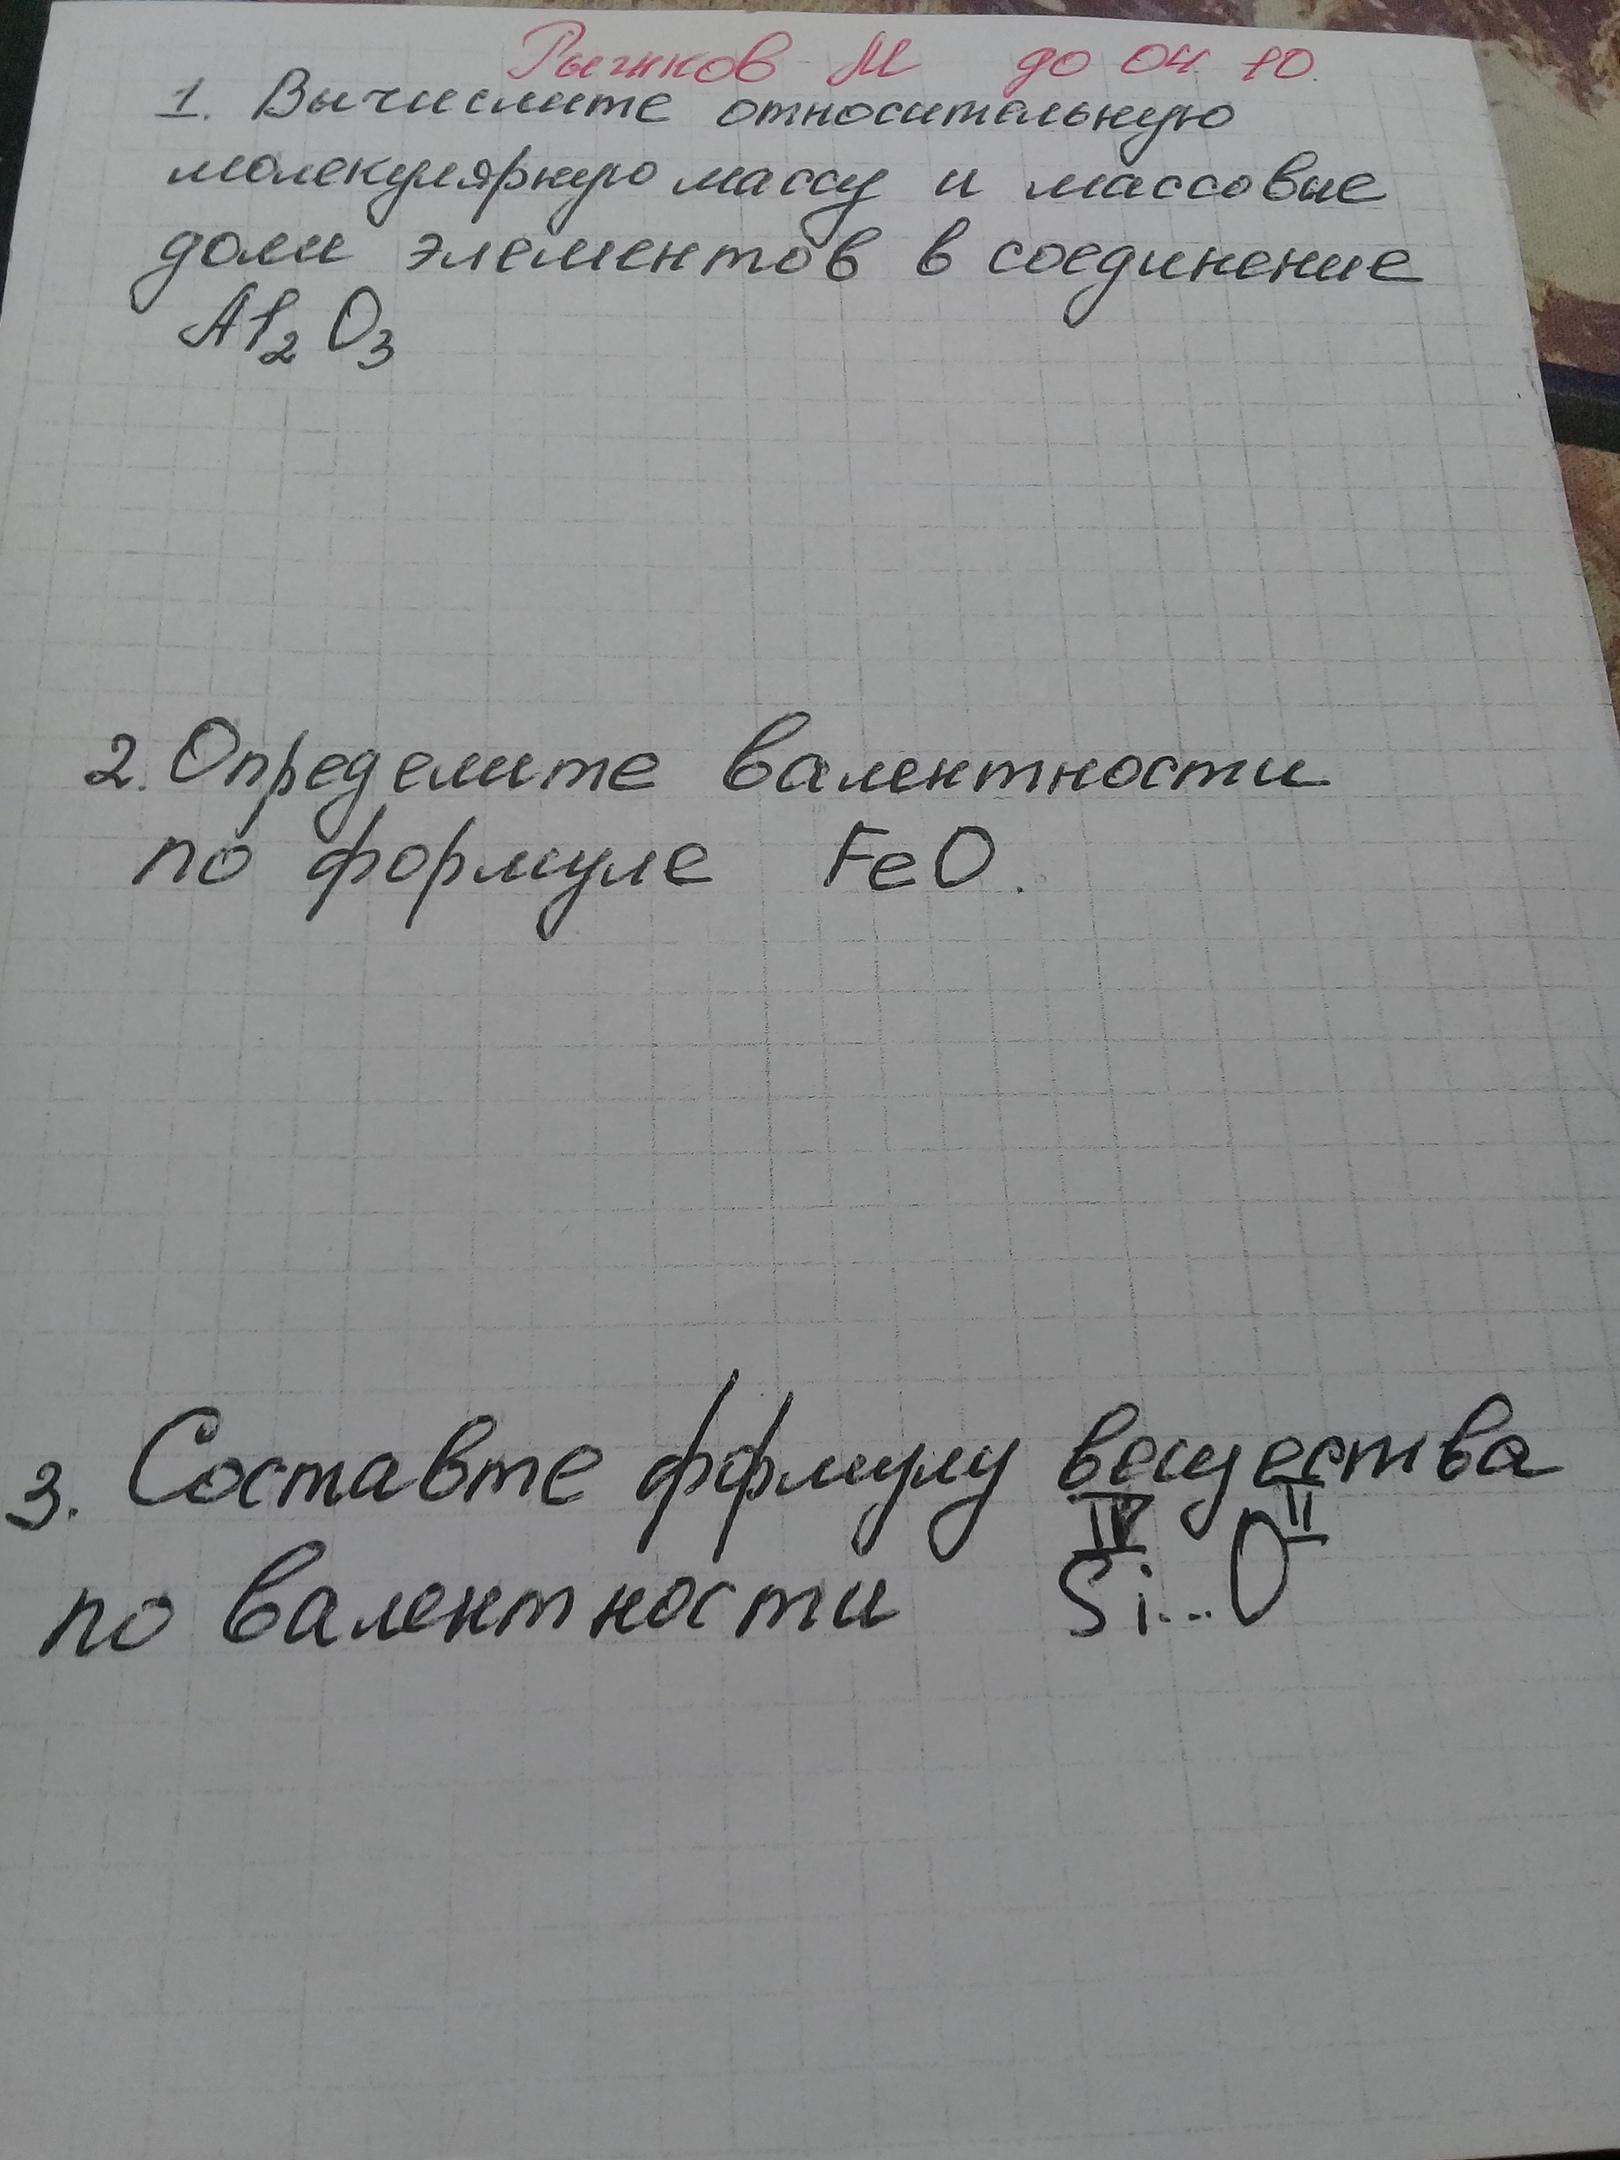 Рыжков М до 04. 10.
1. Вычислите относительную
молекулярную массу и массовые
доли элементов в соединение
Al₂O₃
2. Определите валентности
по формуле FeO.
3. Составте формулу вещества
IV II
по валентности Si...O